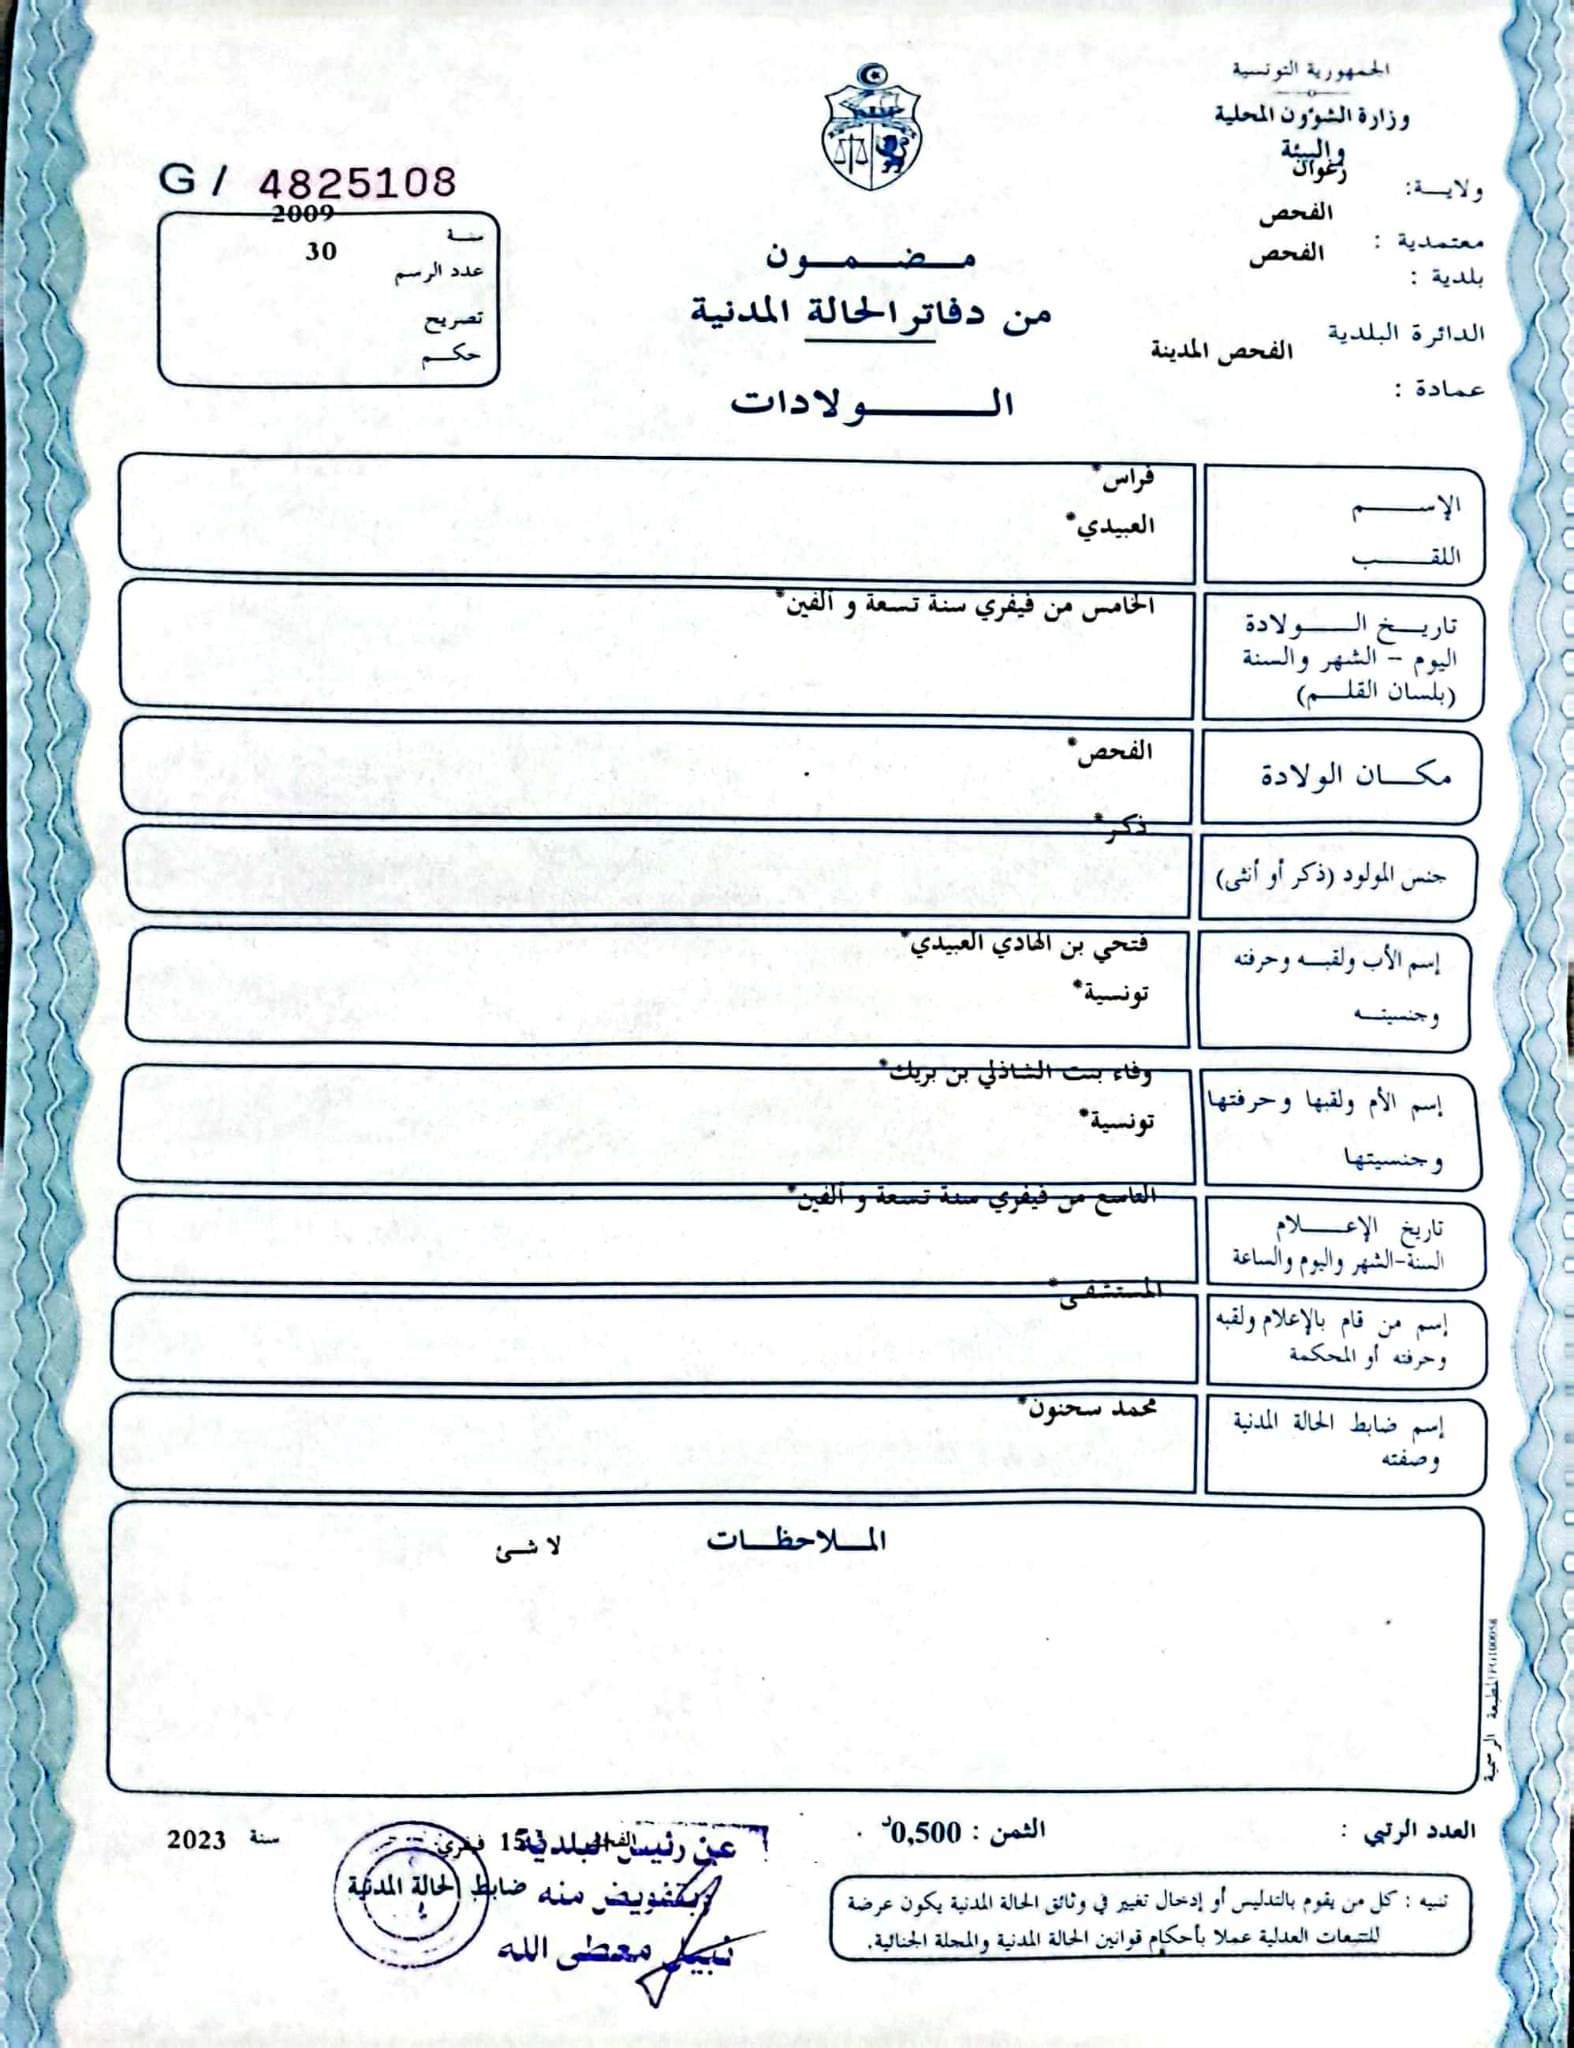 الجمهورية التونسية
وزارة الشؤون المحلية
والبيئة
ولايــة: زغوان
معتمدية : الفحص
بلدية : الفحص
الدائرة البلدية الفحص المدينة
عمادة :
G / 4825108
سنة 2009
عدد الرسم 30
تصريح
حكم
مضمون
من دفاتر الحالة المدنية
الولادات
الإسم فراس*
اللقب العبيدي*
تاريخ الولادة الخامس من فيفري سنة تسعة و ألفين*
اليوم - الشهر والسنة
(بلسان القلم)
مكان الولادة الفحص*
جنس المولود (ذكر أو أنثى) ذكر*
إسم الأب ولقبه وحرفته فتحي بن الهادي العبيدي*
وجنسيته تونسية*
إسم الأم ولقبها وحرفتها وفاء بنت الشاذلي بن بريك*
وجنسيتها تونسية*
تاريخ الإعلام التاسع من فيفري سنة تسعة و ألفين*
السنة-الشهر واليوم والساعة
إسم من قام بالإعلام ولقبه المستشفى*
وحرفته أو المحكمة
إسم ضابط الحالة المدنية محمد سحنون*
وصفته
الملاحظات لا شئ
المطبعة الرسمية
العدد الرتبي :
الثمن : 0,500د
الفحص 15 فيفري سنة 2023
عن رئيس البلدية
وبتفويض منه
ضابط الحالة المدنية
نبيل معطى الله
تنبيه : كل من يقوم بالتدليس أو إدخال تغيير في وثائق الحالة المدنية يكون عرضة
للتتبعات العدلية عملا بأحكام قوانين الحالة المدنية والمجلة الجنائية.